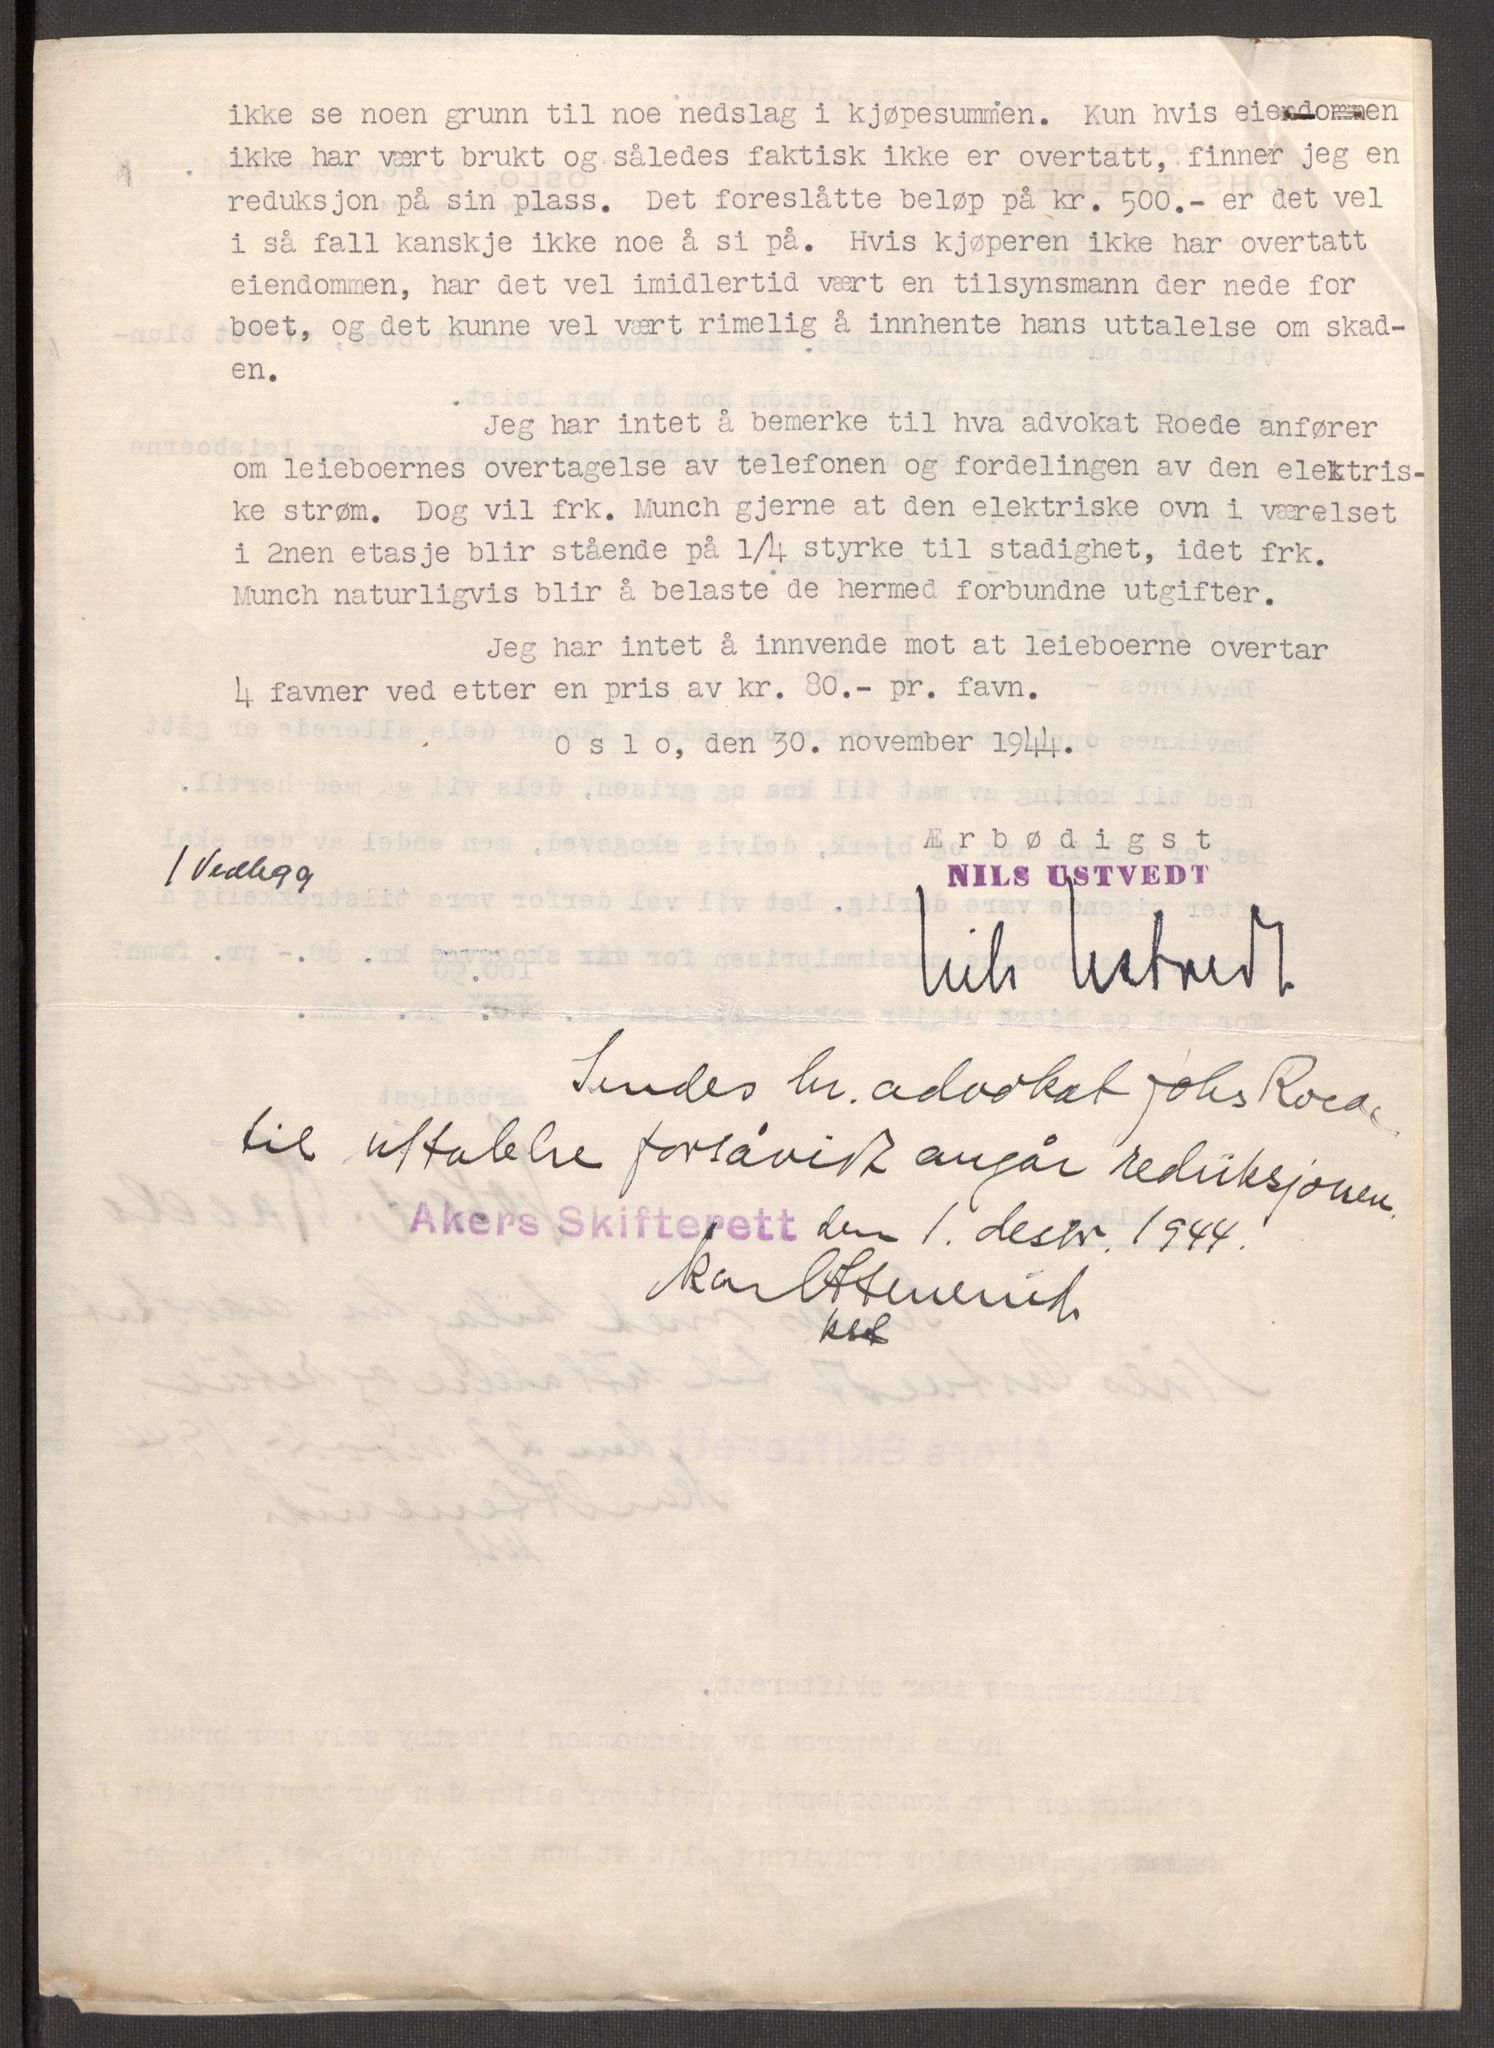 ikke se noen grunn til noe nedslag i kjøpesummen. Kun hvis eiendommen
ikke har vært brukt og således faktisk ikke er overtatt, finner jeg en
reduksjon på sin plass. Det foreslåtte beløp på kr. 500.- er det vel
i så fall kanskje ikke noe å si på. Hvis kjøperen ikke har overtatt
eiendommen, har det vel imidlertid vært en tilsynsmann der nede for
boet, og det kunne vel vært rimelig å innhente hans uttalelse om skad-
en.
Jeg har intet å bemerke til hva advokat Roede anfører
om leieboernes overtagelse av telefonen og fordelingen av den elektris-
ke strøm. Dog vil frk. Munch gjerne at den elektriske ovn i værelset
i 2nen etasje blir stående på 1/4 styrke til stadighet, idet frk.
Munch naturligvis blir å belaste de hermed forbundne utgifter.
Jeg har intet å innvende mot at leieboerne overtar
4 favner ved etter en pris av kr. 80.- pr. favn.
O s l o, den 30. november 1944.
Æ r b ø d i g s t
1 Vedlegg
NILS USTVEDT
Nils Ustvedt
Sendes hr. advokat Johs Roede
til uttalelse forsåvidt angår reduksjonen.
Akers Skifterett den 1. desbr. 1944.